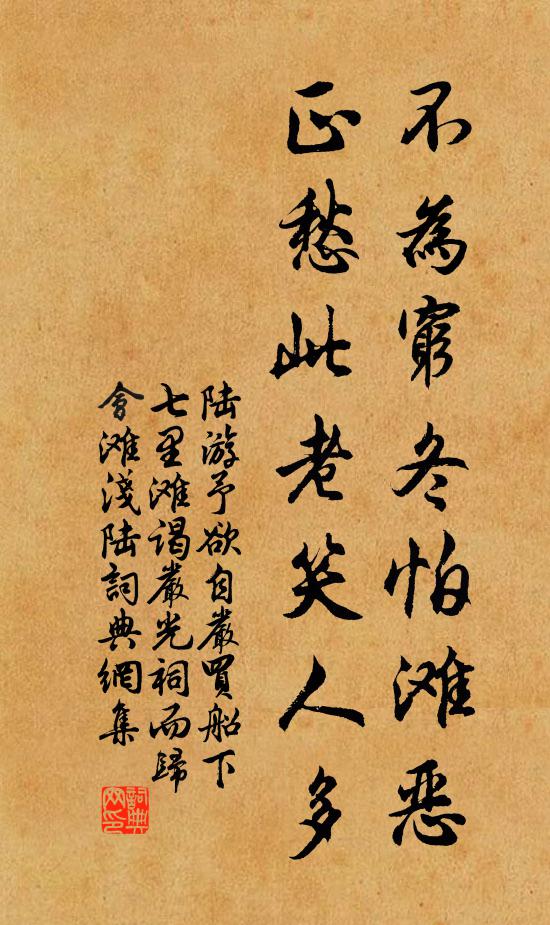 不為窮冬怕滩惡
正愁此老笑人多
陆游予欲自嚴買船下
七里滩謁嚴光祠而歸
會滩淺陆詞典網集
詞典网印